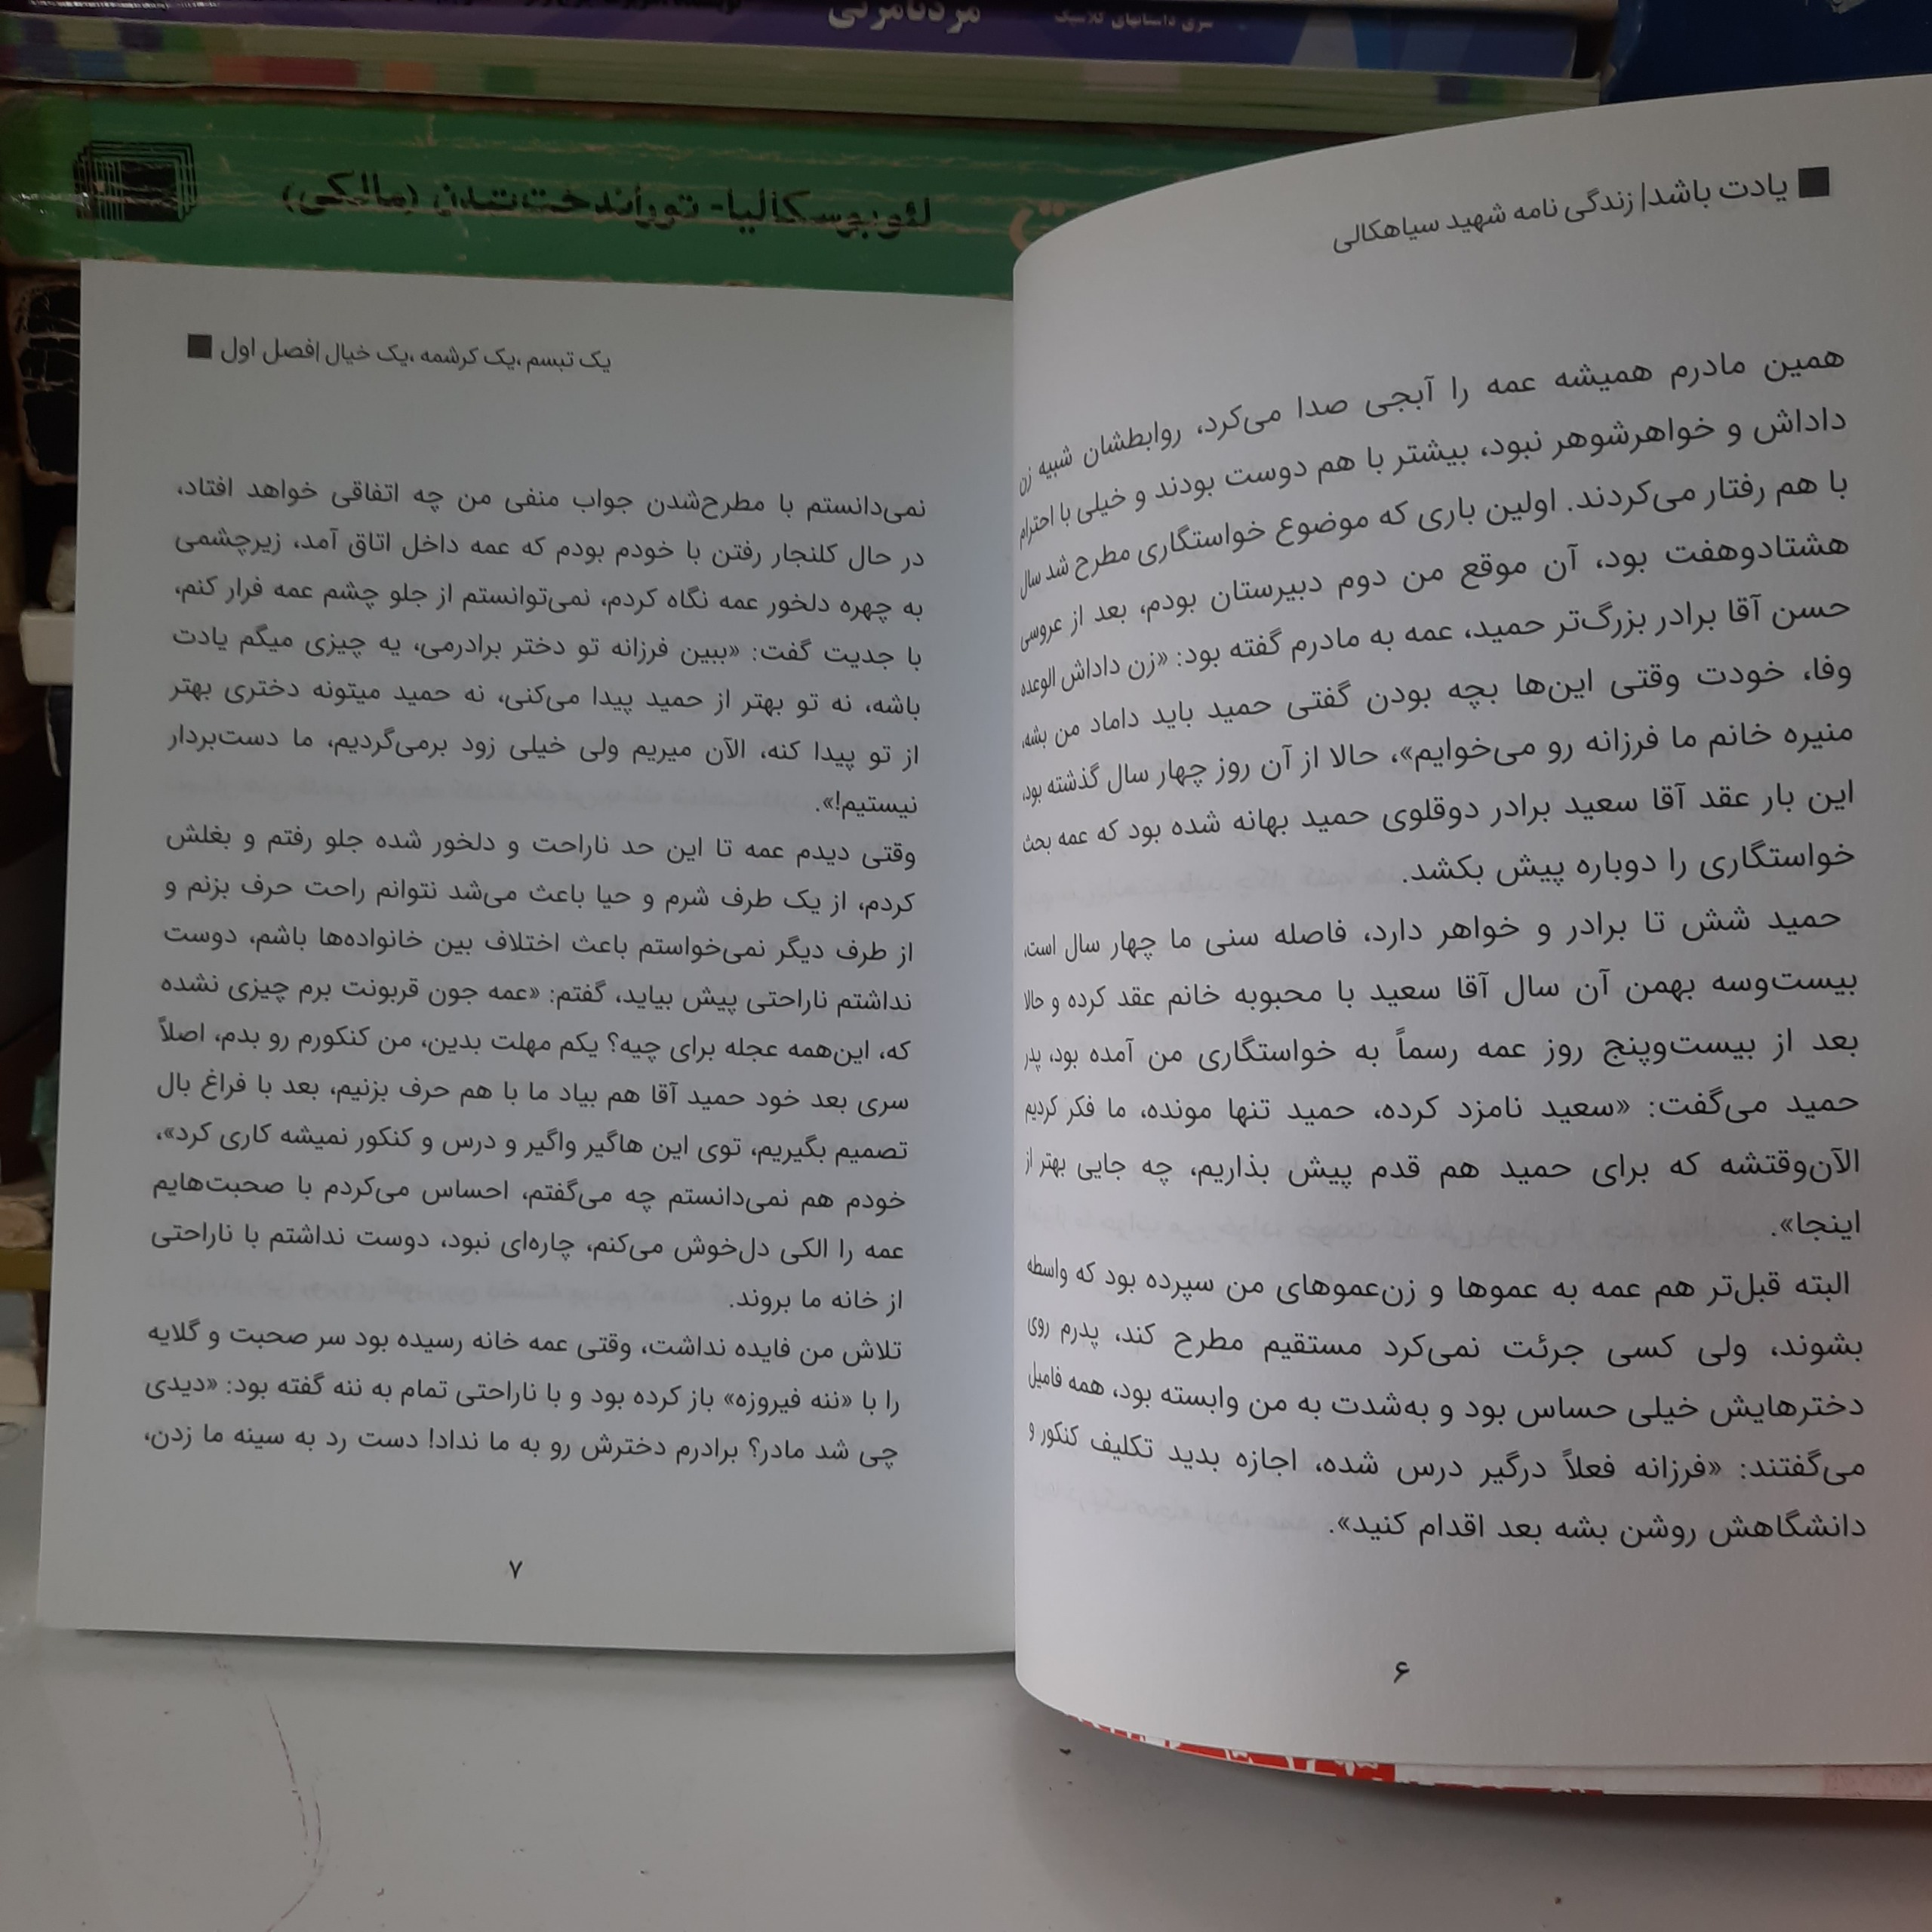 مردنامرئی
سری داستانهای کلاسیک
لئوبوسکالیا- توراندخت تمدن (مالکی)
■ یادت باشد| زندگی نامه شهید سیاهکالی
همین مادرم همیشه عمه را آبجی صدا می‌کرد، روابطشان شبیه زن
داداش و خواهرشوهر نبود، بیشتر با هم دوست بودند و خیلی با احترام
با هم رفتار می‌کردند. اولین باری که موضوع خواستگاری مطرح شد سال
هشتادوهفت بود، آن موقع من دوم دبیرستان بودم، بعد از عروسی
حسن آقا برادر بزرگ‌تر حمید، عمه به مادرم گفته بود: «زن داداش الوعده
وفا، خودت وقتی این‌ها بچه بودن گفتی حمید باید داماد من بشه،
منیره خانم ما فرزانه رو می‌خوایم»، حالا از آن روز چهار سال گذشته بود،
این بار عقد آقا سعید برادر دوقلوی حمید بهانه شده بود که عمه بحث
خواستگاری را دوباره پیش بکشد.
حمید شش تا برادر و خواهر دارد، فاصله سنی ما چهار سال است،
بیست‌وسه بهمن آن سال آقا سعید با محبوبه خانم عقد کرده و حالا
بعد از بیست‌وپنج روز عمه رسماً به خواستگاری من آمده بود، پدر
حمید می‌گفت: «سعید نامزد کرده، حمید تنها مونده، ما فکر کردیم
الآن‌وقتشه که برای حمید هم قدم پیش بذاریم، چه جایی بهتر از
اینجا».
البته قبل‌تر هم عمه به عموها و زن‌عموهای من سپرده بود که واسطه
بشوند، ولی کسی جرئت نمی‌کرد مستقیم مطرح کند، پدرم روی
دخترهایش خیلی حساس بود و به‌شدت به من وابسته بود، همه فامیل
می‌گفتند: «فرزانه فعلاً درگیر درس شده، اجازه بدید تکلیف کنکور و
دانشگاهش روشن بشه بعد اقدام کنید».
۶
یک تبسم ،یک کرشمه ،یک خیال |فصل اول ■
نمی‌دانستم با مطرح‌شدن جواب منفی من چه اتفاقی خواهد افتاد،
در حال کلنجار رفتن با خودم بودم که عمه داخل اتاق آمد، زیرچشمی
به چهره دلخور عمه نگاه کردم، نمی‌توانستم از جلو چشم عمه فرار کنم،
با جدیت گفت: «ببین فرزانه تو دختر برادرمی، یه چیزی میگم یادت
باشه، نه تو بهتر از حمید پیدا می‌کنی، نه حمید میتونه دختری بهتر
از تو پیدا کنه، الآن میریم ولی خیلی زود برمی‌گردیم، ما دست‌بردار
نیستیم!».
وقتی دیدم عمه تا این حد ناراحت و دلخور شده جلو رفتم و بغلش
کردم، از یک طرف شرم و حیا باعث می‌شد نتوانم راحت حرف بزنم و
از طرف دیگر نمی‌خواستم باعث اختلاف بین خانواده‌ها باشم، دوست
نداشتم ناراحتی پیش بیاید، گفتم: «عمه جون قربونت برم چیزی نشده
که، این‌همه عجله برای چیه؟ یکم مهلت بدین، من کنکورم رو بدم، اصلاً
سری بعد خود حمید آقا هم بیاد ما با هم حرف بزنیم، بعد با فراغ بال
تصمیم بگیریم، توی این هاگیر واگیر و درس و کنکور نمیشه کاری کرد»،
خودم هم نمی‌دانستم چه می‌گفتم، احساس می‌کردم با صحبت‌هایم
عمه را الکی دل‌خوش می‌کنم، چاره‌ای نبود، دوست نداشتم با ناراحتی
از خانه ما بروند.
تلاش من فایده نداشت، وقتی عمه خانه رسیده بود سر صحبت و گلایه
را با «ننه فیروزه» باز کرده بود و با ناراحتی تمام به ننه گفته بود: «دیدی
چی شد مادر؟ برادرم دخترش رو به ما نداد! دست رد به سینه ما زدن،
۷